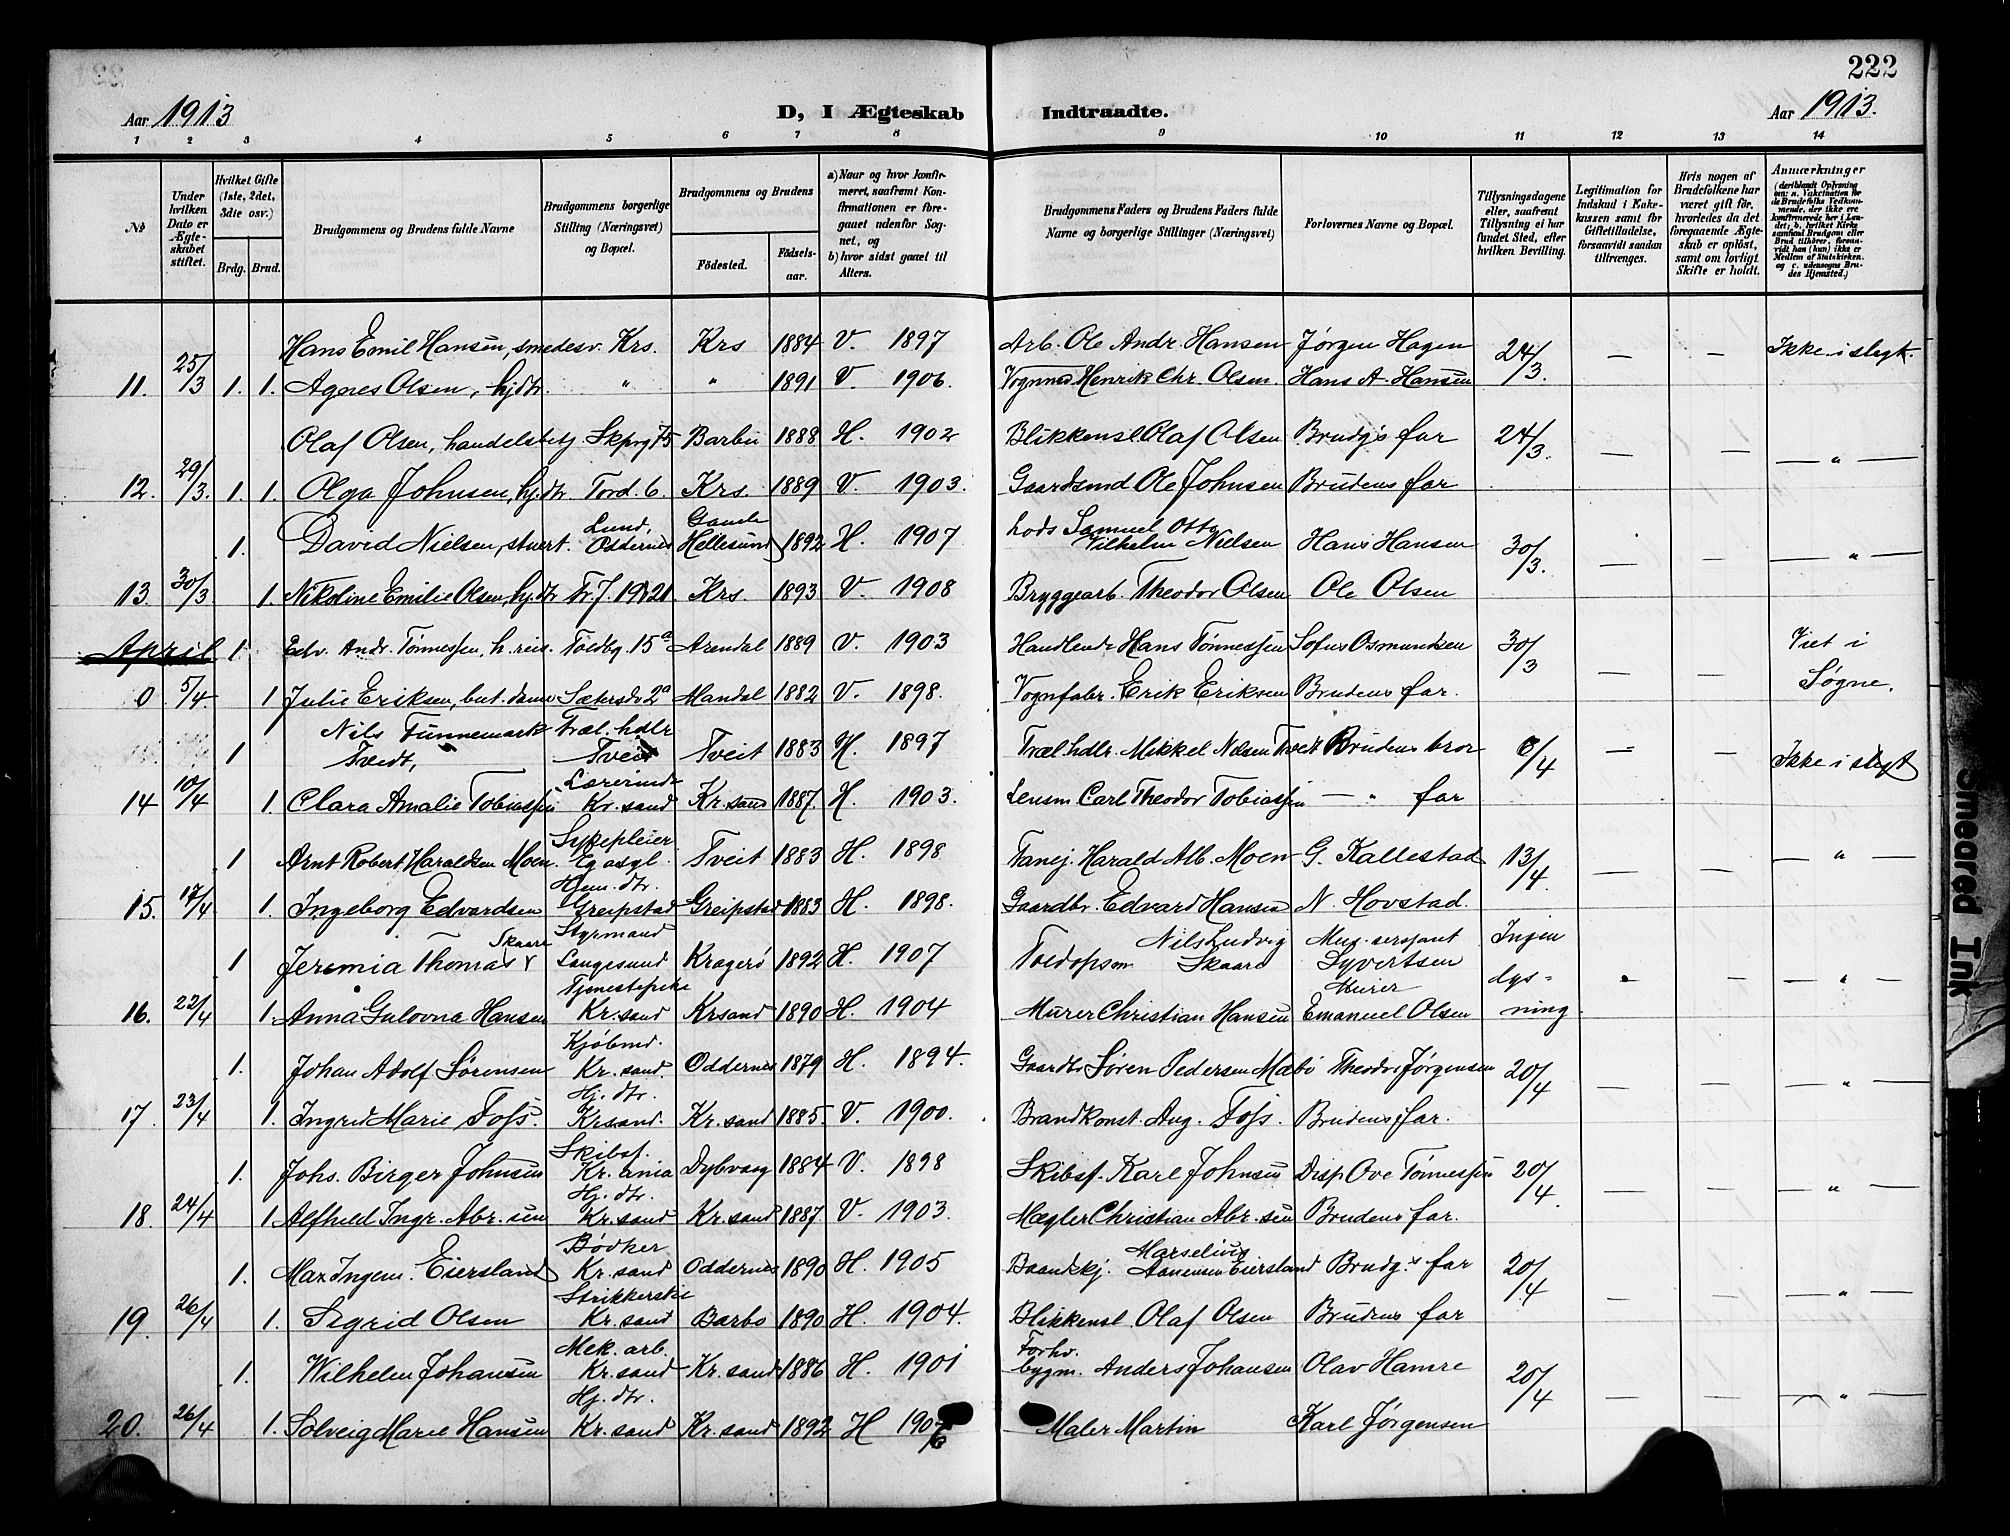 222
Aar 1913 D, I Ægteskab Indtraadte. Aar 1913.
1 2 3 4 5 6 7 8 9 10 11 12 13 14
No
Under hvilken Dato er Ægteskabet stiftet.
Hvilket Gifte (1ste, 2det, 3die osv.)
Brdg. Brud.
Brudgommens og Brudens fulde Navne
Brudgommens borgerlige Stilling (Næringsvei) og Bopæl.
Brudgommens og Brudens
Fødested. Fødselsaar.
a) Naar og hvor konfirmeret, saafremt Konfirmationen er foregaaet udenfor Sognet, og
b) hvor sidst gaaet til Alters.
Brudgommens Faders og Brudens Faders fulde Navne og borgerlige Stillinger (Næringsvei)
Forlovernes Navne og Bopæl.
Tillysningsdagene eller, saafremt Tillysning ei har fundet Sted, efter hvilken Bevilling.
Legitimation for Indskud i Enkekassen samt for Giftetilladelse, forsaavidt saadan tiltrænges.
Hvis nogen af Brudefolkene har været gift før, hvorledes da det foregaaende Ægteskab er opløst, samt om lovligt Skifte er holdt.
Anmærkninger
Hans Emil Hansen, smedesv. Krs. Krs 1884 V. 1897 Arb. Ole Andr. Hansen Jørgen Hagen 24/3. — — Ikke i slegt.
11. 25/3 1. 1. Agnes Olsen, hjdtr. " " 1891 V. 1906. Vognm Henrik Chr. Olsen. Hans A. Hansen
Olaf Olsen, handelsbetj Skprg 75 Barbu 1888 H. 1902 Blikkensl. Olaf Olsen Brudg's far 24/3. — — — " —
12. 29/3. 1. 1. Olga Johnsen, hj.dtr Tord. 6. Krs. 1889 V. 1903. Gaardsmd Ole Johnsen Brudens far
1. David Nielsen, stuert. Lund, Oddernes Gamle Hellesund 1892 H. 1907 Lods Samuel Otto Vilhelm Nielsen Hans Hansen 30/3. — — — " —
13. 30/3 1. Nikoline Emilie Olsen, hj.dtr Tr. J. 19 21 Krs. 1893 V. 1908 Bryggearb. Theodor Olsen Ole Olsen
April 1. Edv. Andr. Tønnessen, h. reis. Toldbg. 15a Arendal 1889 V. 1903 Handlende Hans Tønnessen Sofus Osmundsen 30/3 — — Viet i Søgne.
0 5/4 1. Julie Eriksen, but. dame Sætersdv 2a Mandal 1882 V. 1898. Vognfabr. Erik Eriksen Brudens far.
1 Nils Tunnemark Tveidt, Træl. hdlr Tveit Tveit 1883 H. 1897 Træl. hdlr. Mikkel Nilsen Tveit Brudens bror 6/4 — — Ikke i slegt
14 10/4 1. Clara Amalie Tobiassen Lærerinde Kr. sand Kr. sand 1887. H. 1903. Lensm Carl Theodor Tobiassen — " far
1 Arnt Robert Haraldsen Moen. Sykepleier Eg asyl. Tveit 1883 H. 1898 Harald Alb. Moen G. Kallestad 13/4. — — — " —
15. 17/4 1. Ingeborg Edvardsen Hjem. dtr. Greipstad Greipstad 1883 H. 1898. Gaardbr. Edvard Hansen N. Hovstad.
1 Jeremia Thomas Skaare Styrmand Langesund Kragerø 1892 H. 1907 Toldopsm Nils Ludvig Skaare Mus. sersjant Syvertsen Ingen lysning — — " —
16. 22/4 1. Anna Gulovna Hansen Tjenestepike Kr. sand Krsand 1890 H. 1904 Murer Christian Hansen Murer Emanuel Olsen
1. Johan Adolf Sørensen Kjøbmd. Kr. sand. Oddernes 1879 H. 1894. Gaardbr Søren Pedersen Mæbø Theodor Jørgensen 20/4 — — — " —
17. 23/4 1. Ingrid Marie Foss. Hj. dtr. Krsand. Kr. sand 1885. V. 1900. Brandkonst. Aug. Foss. Brudens far.
1. Johs. Birger Johnsen Skibsf. Kr. ania Dybvaag 1884 V. 1898 Skibsf. Karl Johnsen Disp. Ove Tønnessen 20/4. — — — " —
18. 24/4 1. Alfhild Ingr. Abr. sen Hj. dtr. Kr. sand Kr. sand 1887 V. 1903. Mægler Christian Abr. sen Brudens far.
1. Max Ingem. Eiersland Bødker Kr. sand Oddernes 1890 H. 1905 Marselius Aanensen Eiersland Brudg.s far 20/4 — — — " —
19. 26/4 1. Sigrid Olsen Strikkerske Kr. sand Barbo 1890 H. 1904. Blikkensl. Olaf Olsen Brudens far
1. Wilhelm Johansen Mek. arb. Kr. sand Kr. sand 1886 H. 1901 Forhv. bygm. Anders Johansen Olav Hamre 20/4 — — — " —
20. 26/4 1. Solveig Marie Hansen Hj. dtr. Kr. sand Kr. sand 1892 H 1907 Maler Martin Karl Jørgensen
Smeared Ink